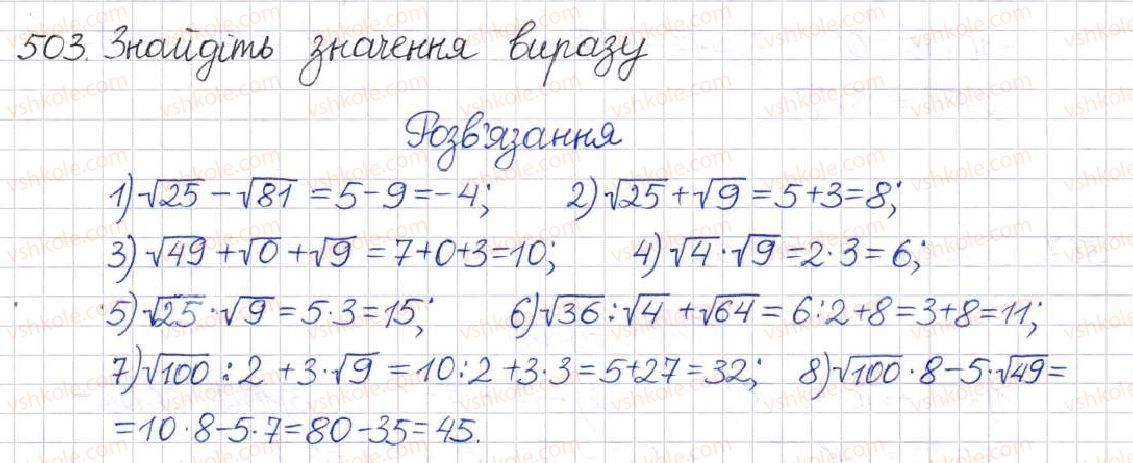 503. Знайдіть значення виразу
Розв'язання
1) √25 − √81 = 5 − 9 = −4; 2) √25 + √9 = 5 + 3 = 8;
3) √49 + √0 + √9 = 7 + 0 + 3 = 10; 4) √4 · √9 = 2 · 3 = 6;
5) √25 · √9 = 5 · 3 = 15; 6) √36 : √4 + √64 = 6 : 2 + 8 = 3 + 8 = 11;
7) √100 : 2 + 3 · √9 = 10 : 2 + 3 · 3 = 5 + 27 = 32; 8) √100 · 8 − 5 · √49 =
= 10 · 8 − 5 · 7 = 80 − 35 = 45.